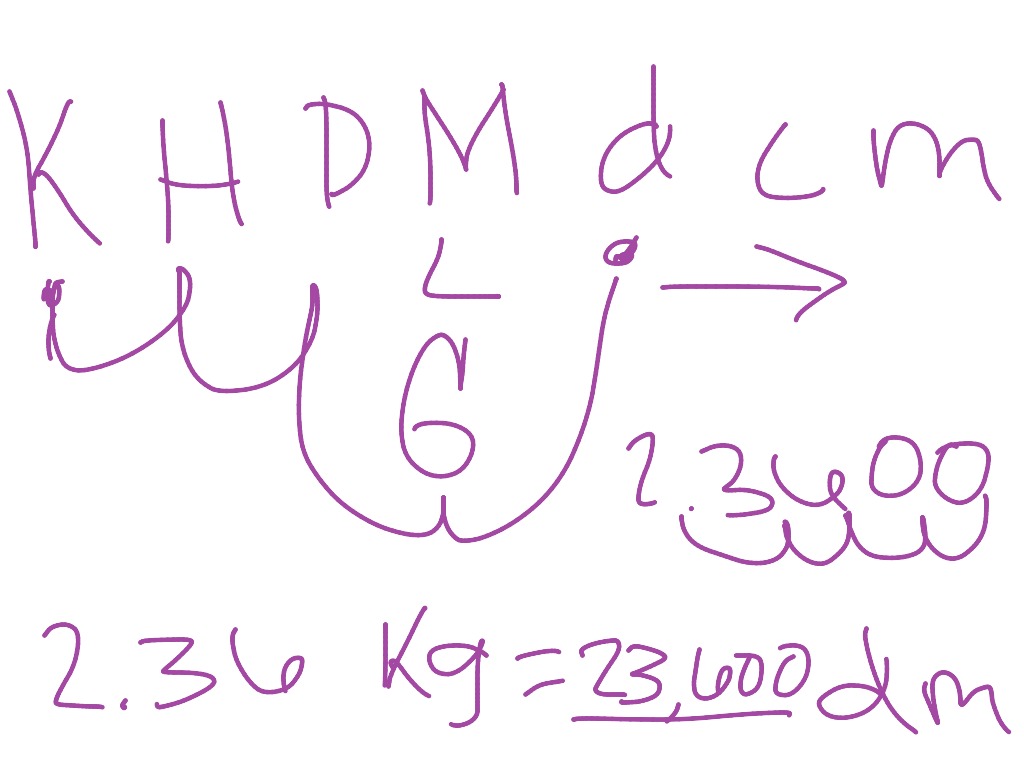 K H D M d c m
L
G
2.3600
2.36 Kg = 23,600 dm